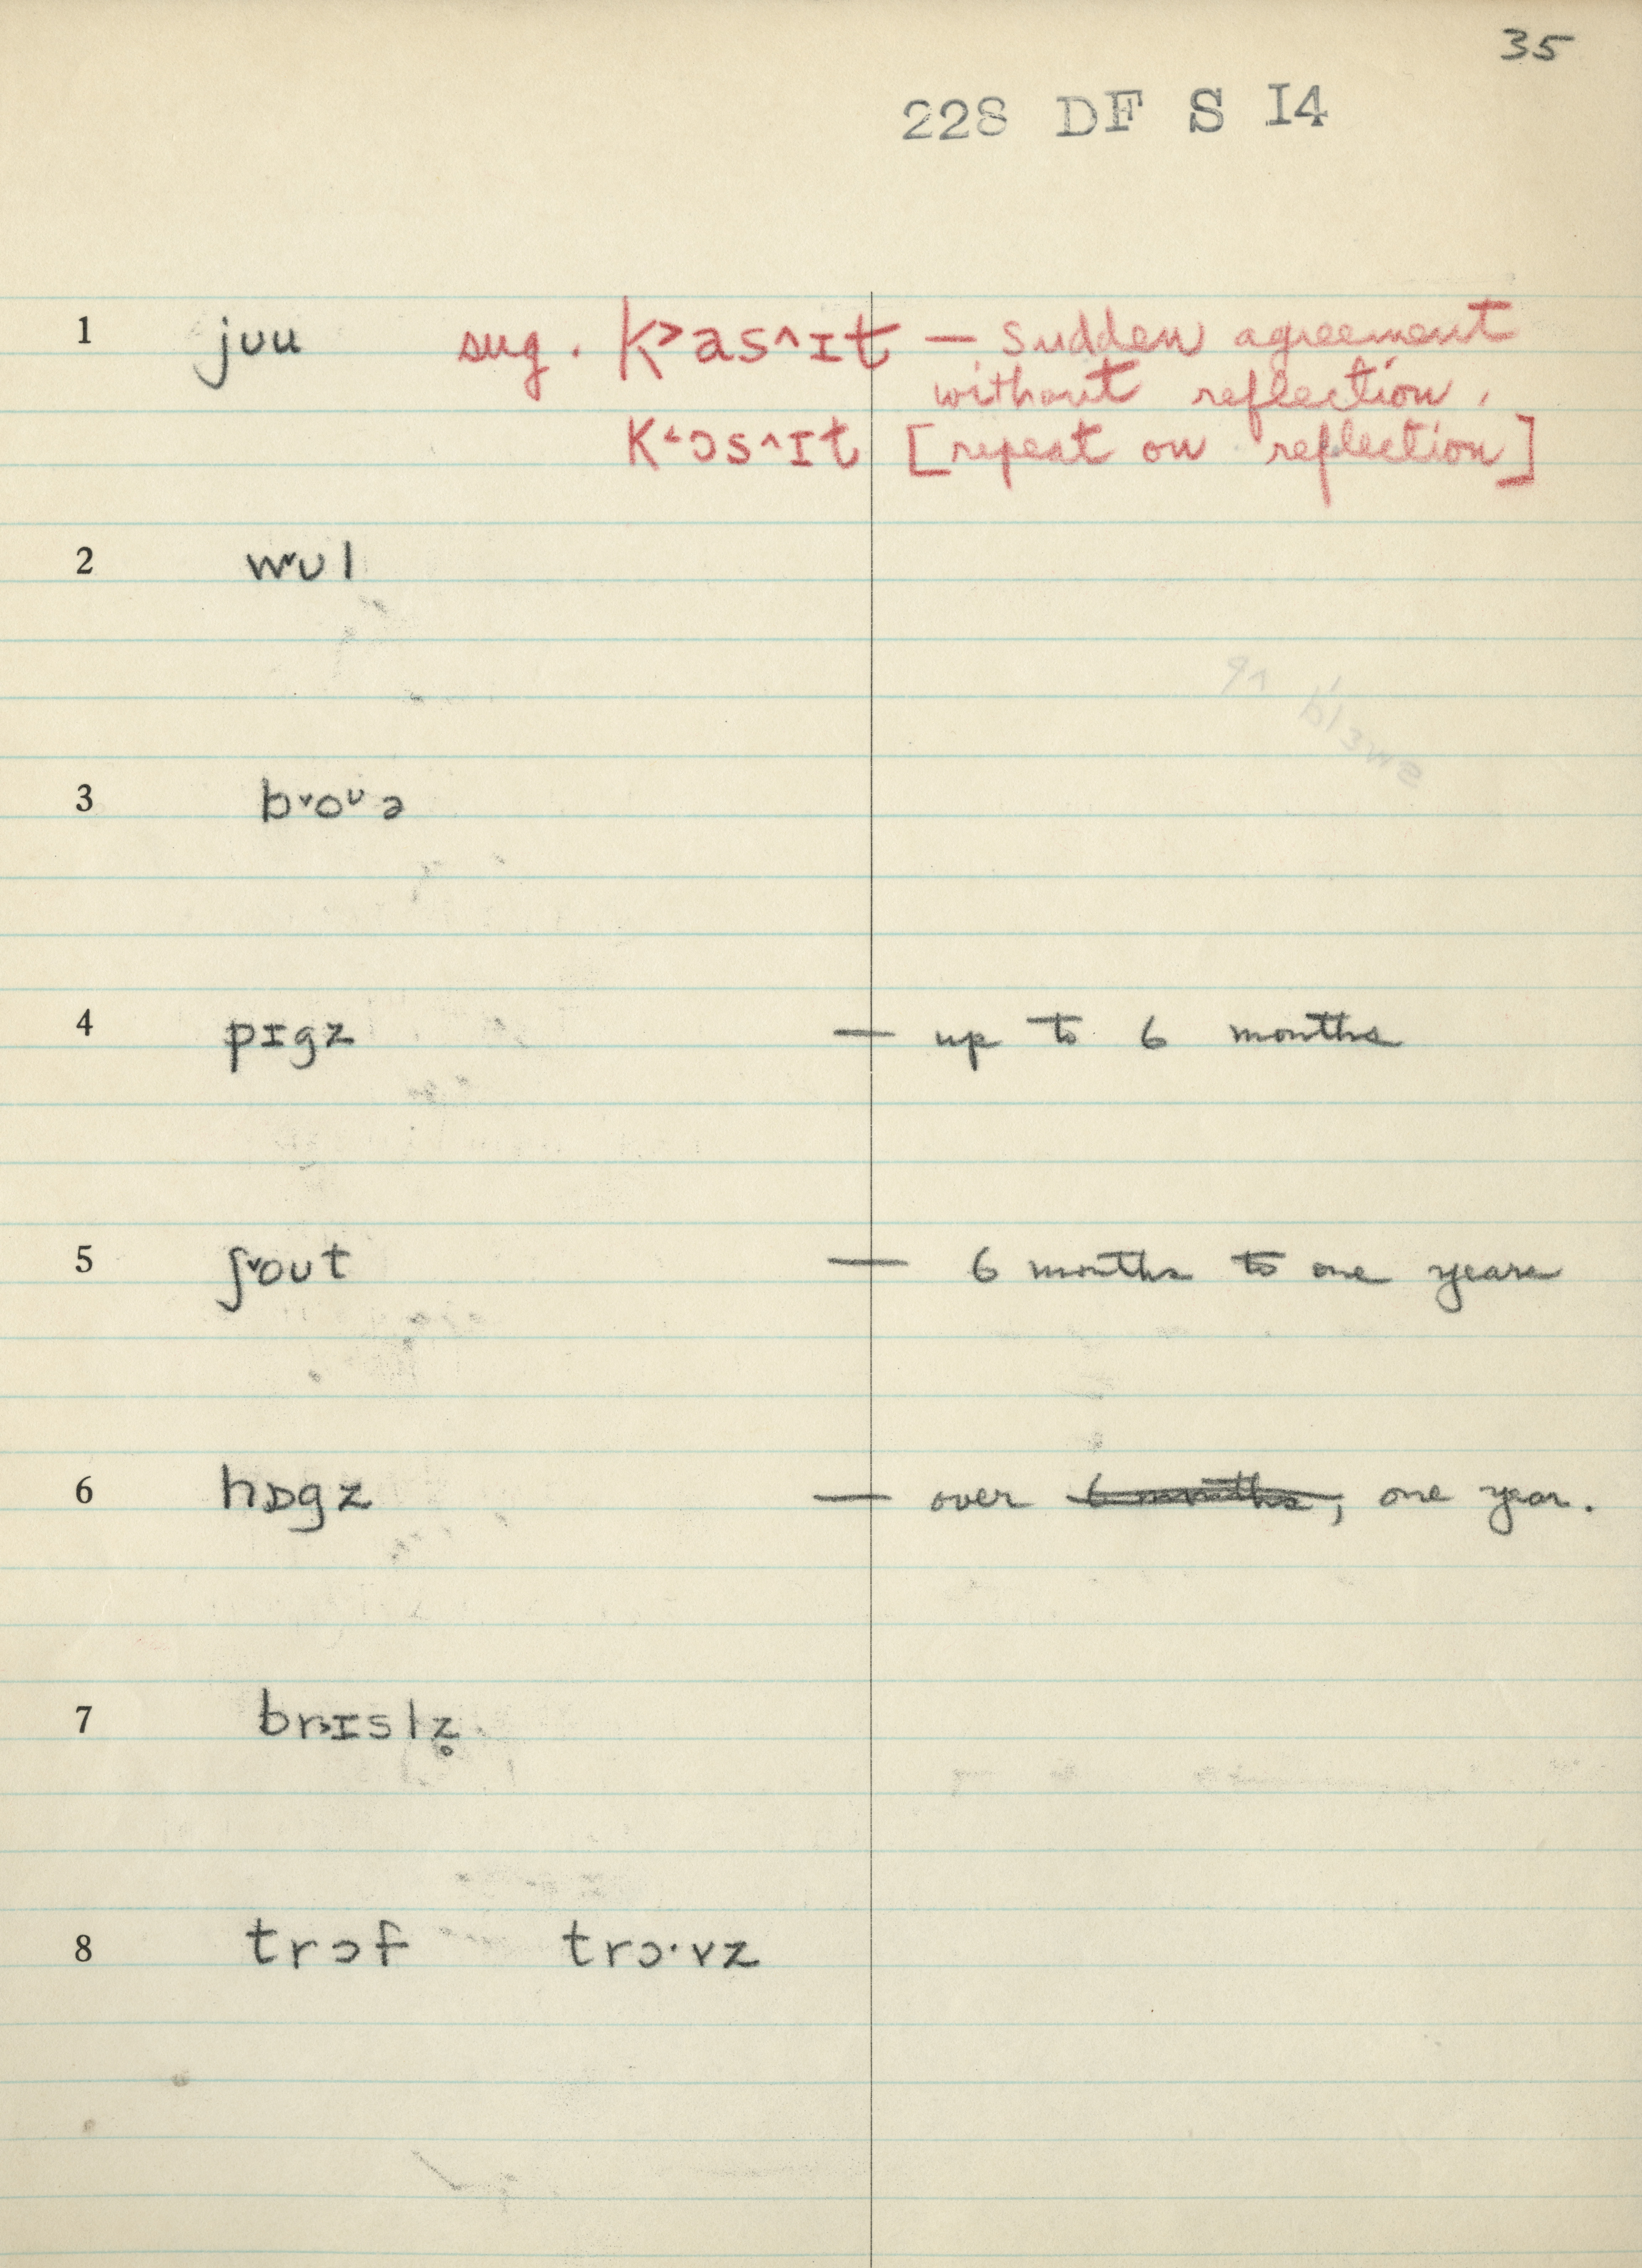 35
228 DF S I4
1 jʊu sug. k˃as^ɪt — sudden agreement
without reflection.
k˂ɔs^ɪt [repeat on reflection]
2 w˅ʊl
3 b˅oᶷə
4 pɪgz — up to 6 months
5 ʃ˅oʊt — 6 months to one years
6 hɒgz — over 6 months, one year.
7 br˃ɪslz̥
8 trɔf trɔ·vz